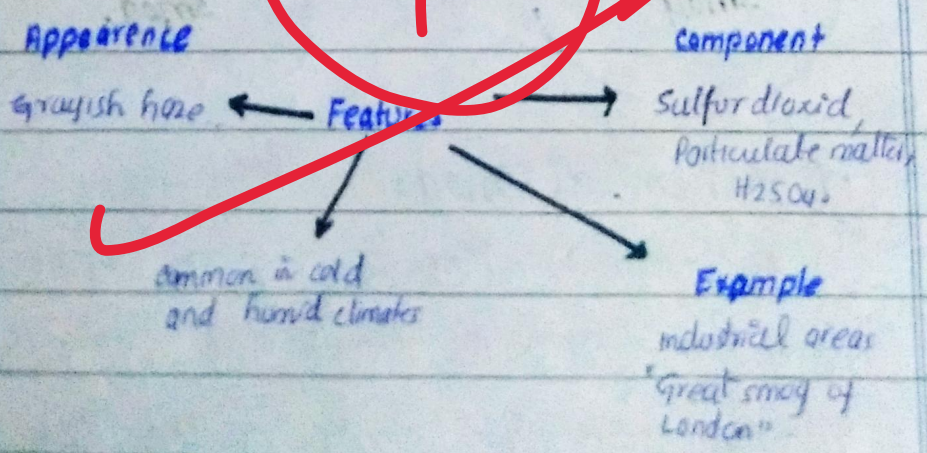 Appearence
Component
Grayish haze
Features
Sulfur dioxid,
Particulate matter,
H2SO4.
common in cold
and humid climates
Example
industrial areas
"Great smog of
London"